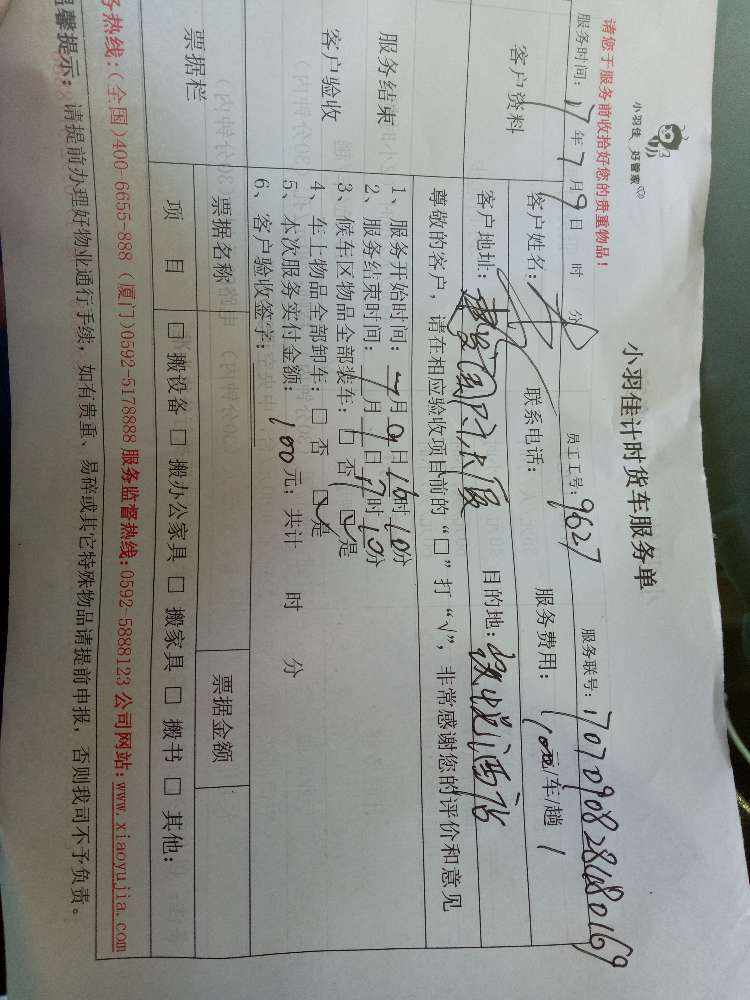 小羽佳 好管家
小羽佳计时货车服务单
请您于服务前收拾好您的贵重物品!
服务时间: 17年7月9日 时 分 员工工号: 9627 服务联号:
客户资料 客户姓名: 联系电话: 服务费用: 100元/车/趟
客户地址: 目的地: 悦酒店
尊敬的客户，请在相应验收项目前的“□”打“√”，非常感谢您的评价和意见
服务结束
客户验收
1、服务开始时间: 7月9日16时10分
2、服务结束时间: 月 日17时10分
3、候车区物品全部装车: □ 否 ☑ 是
4、车上物品全部卸车: □ 否 ☑ 是
5、本次服务实付金额: 100元; 共计 时 分
6、客户验收签字:
票据栏 票据名称 票据金额
项 目 □ 搬设备 □ 搬办公家具 □ 搬家具 □ 搬书 □ 其他:
务热线:(全国)400-6655-888 (厦门)0592-5178888 服务监督热线:0592-5888123 公司网站:www.xiaoyujia.com
温馨提示: 请提前办理好物业通行手续，如有贵重、易碎或其它特殊物品请提前申报，否则我司不予负责。